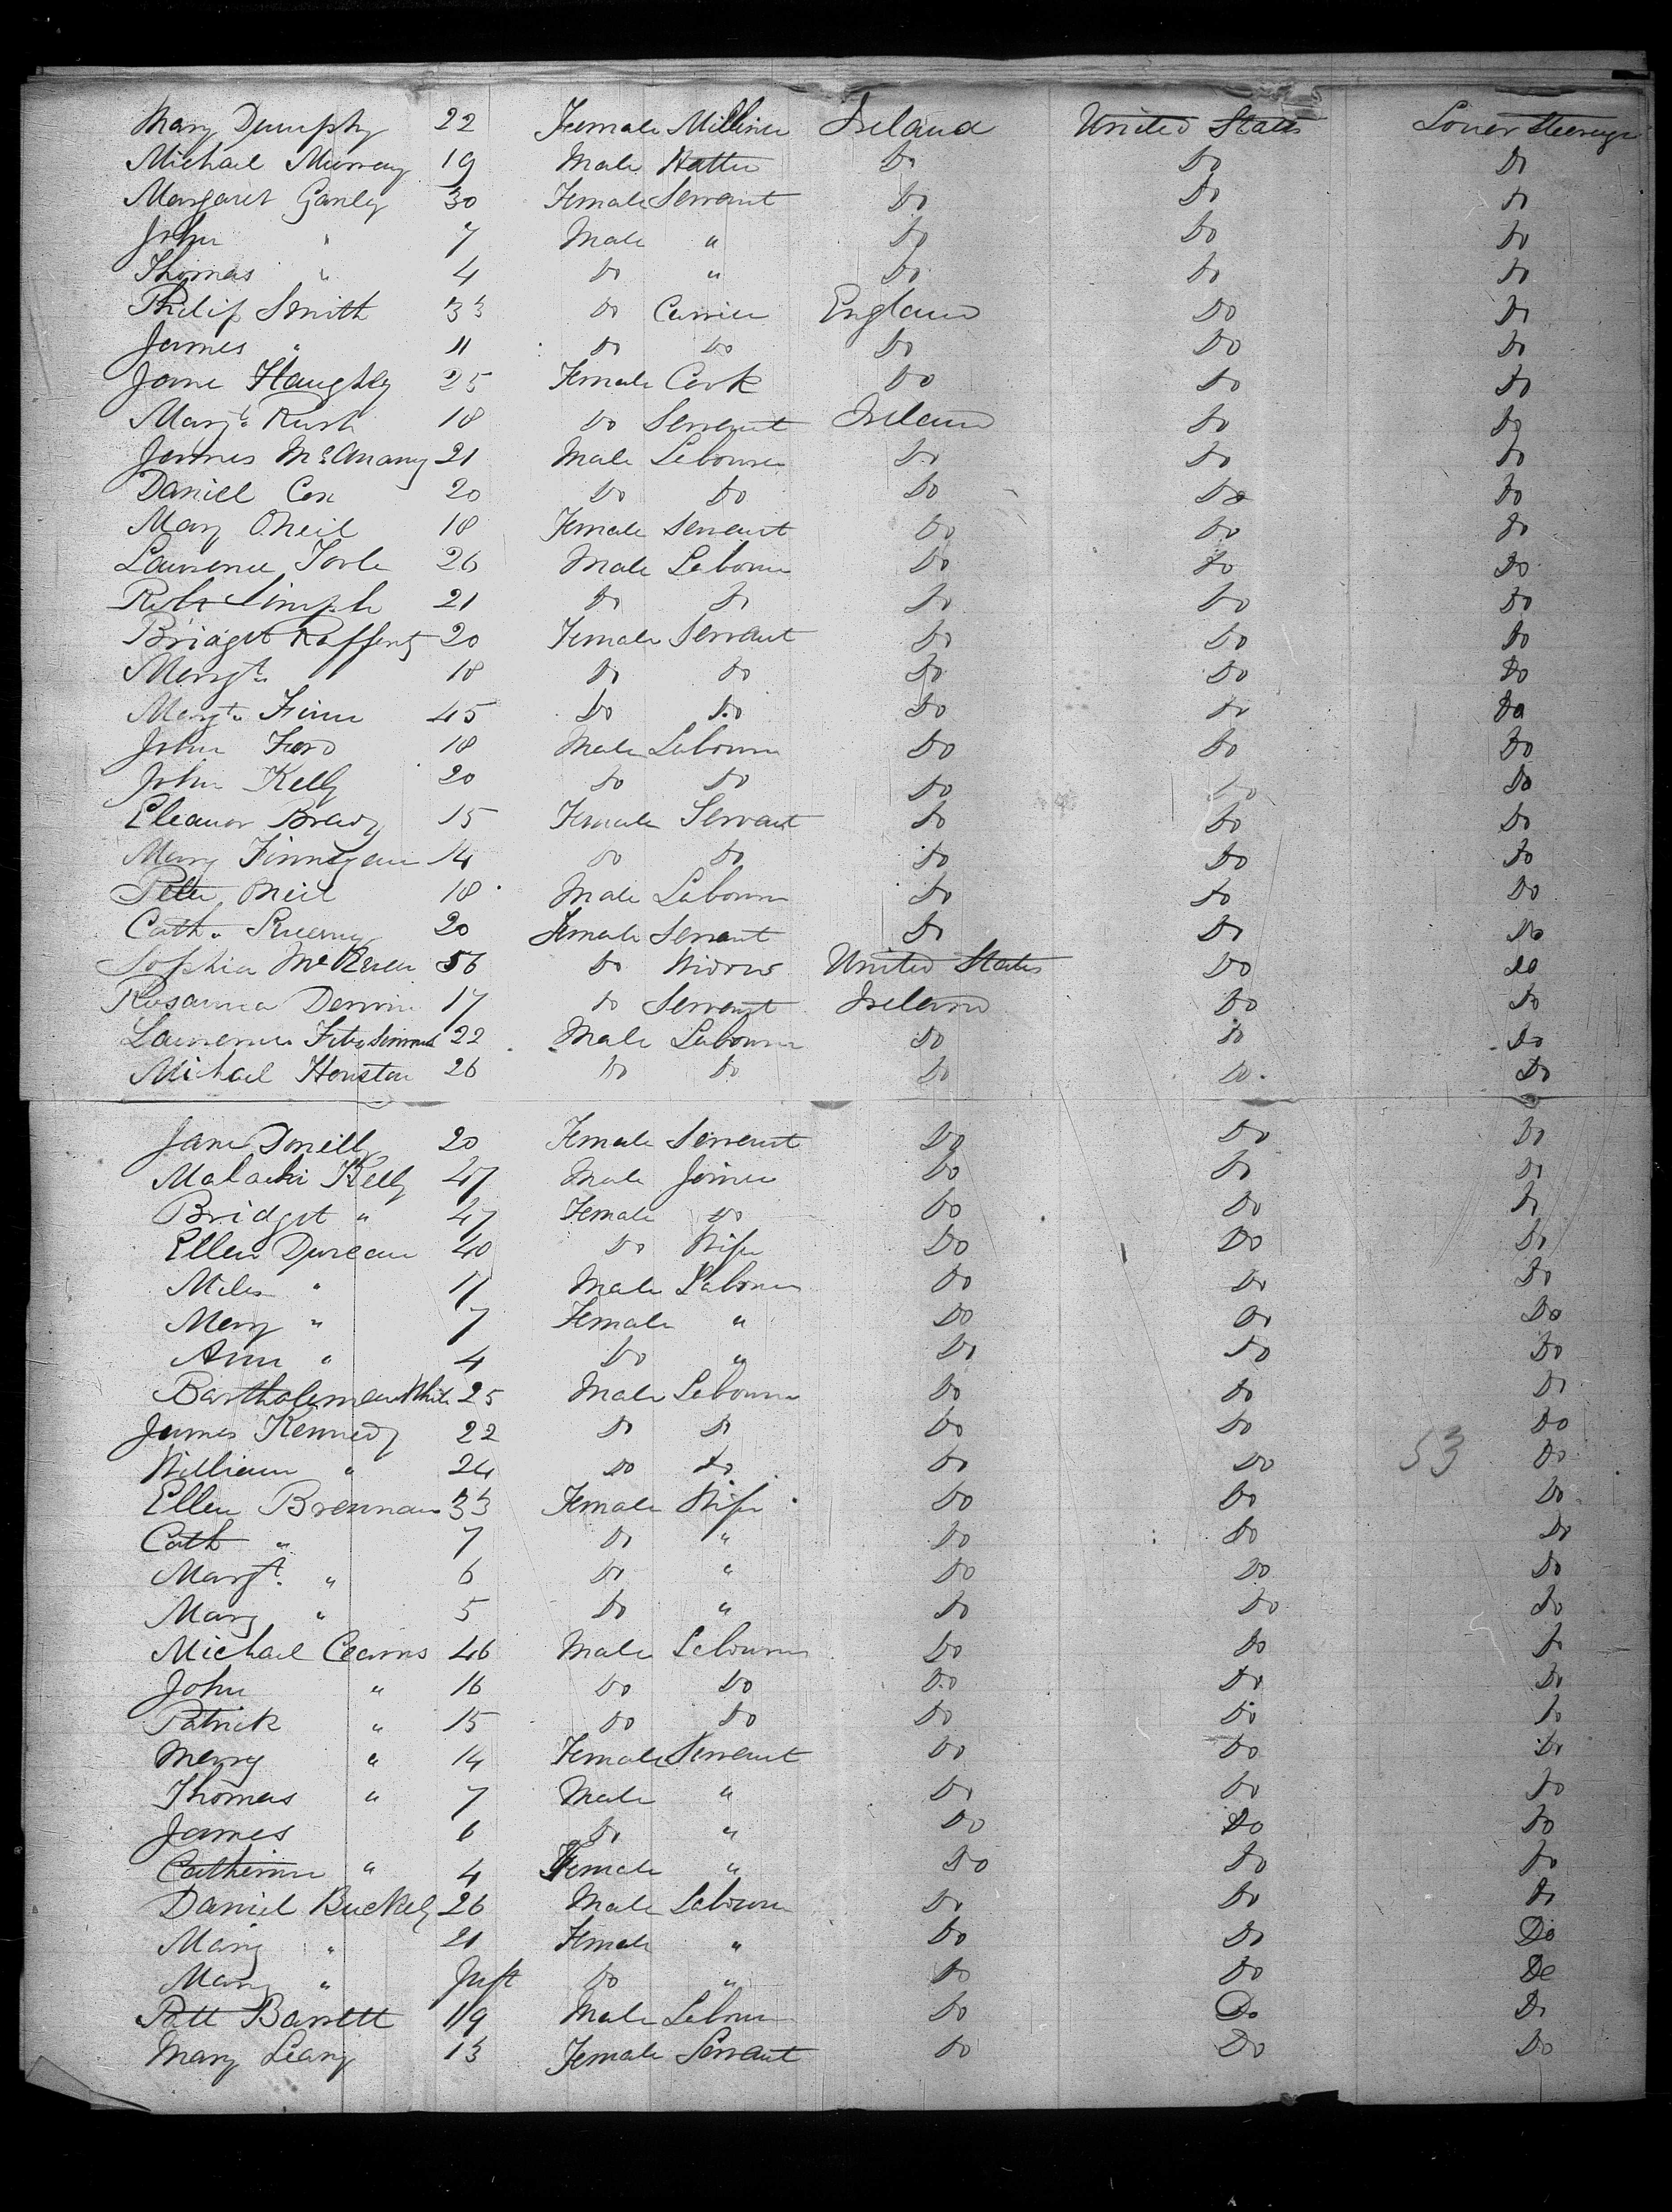 Mary Dumphy 22 Female Milliner Ireland United States Lower Steerage
Michael Murray 19 Male Hatter Do Do Do
Margaret Ganley 30 Female Servant Do Do Do
John " 7 Male " Do Do Do
Thomas " 4 Do " Do Do Do
Philip Smith 33 Do Currier England Do Do
James " 11 Do Do Do Do Do
Jane Haughey 25 Female Cook Do Do Do
Margt. Rush 18 Do Servant Ireland Do Do
James McAnany 21 Male Labourer Do Do Do
Daniel Cox 20 Do Do Do Do Do
Mary O.Neil 18 Female Servant Do Do Do
Lawrence Toole 26 Male Labourer Do Do Do
Robt 21 Do Do Do Do Do
Bridget Rafferty 20 Female Servant Do Do Do
Margt. 18 Do Do Do Do Do
Margt. Finn 45 Do Do Do Do Do
John Ford 18 Male Labourer Do Do Do
John Kelly 20 Do Do Do Do Do
Eleanor Brady 15 Female Servant Do Do Do
Mary Finnegan 14 Do Do Do Do Do
Peter ONeil 18 Male Labourer Do Do Do
Cath. 20 Female Servant Do Do Do
Sophia 56 Do Widow United States Do Do
Rosanna 17 Do Servant Ireland Do Do
Lawrence Fitzsimmons 22 Male Labourer Do Do Do
Michael Houston 26 Do Do Do Do Do
Jane 20 Female Servant Do Do Do
Malachi Kelly 47 Male Joiner Do Do Do
Bridget " 47 Female Do Do Do Do
Ellen Duncan 40 Do Wife Do Do Do
Miles " 11 Male Labourer Do Do Do
Mary " 7 Female " Do Do Do
Ann " 4 Do " Do Do Do
Bartholemew White 25 Male Labourer Do Do Do
James Kennedy 22 Do Do Do Do Do
William " 24 Do Do Do Do 53 Do
Ellen Brennan 33 Female Wife Do Do Do
Cath " 7 Do " Do Do Do
Margt. " 6 Do " Do Do Do
Mary " 5 Do " Do Do Do
Michael Cearns 46 Male Labourer Do Do Do
John " 16 Do Do Do Do Do
Patrick " 15 Do Do Do Do Do
Mary " 14 Female Servant Do Do Do
Thomas " 7 Male " Do Do Do
James 6 Do " Do Do Do
Catherine " 4 Female " Do Do Do
Daniel Buckely 26 Male Labourer Do Do Do
Mary " 21 Female " Do Do Do
Mary " Inft Do " Do Do Do
Patt Barrett 19 Male Labourer Do Do Do
Mary Leary 13 Female Servant Do Do Do